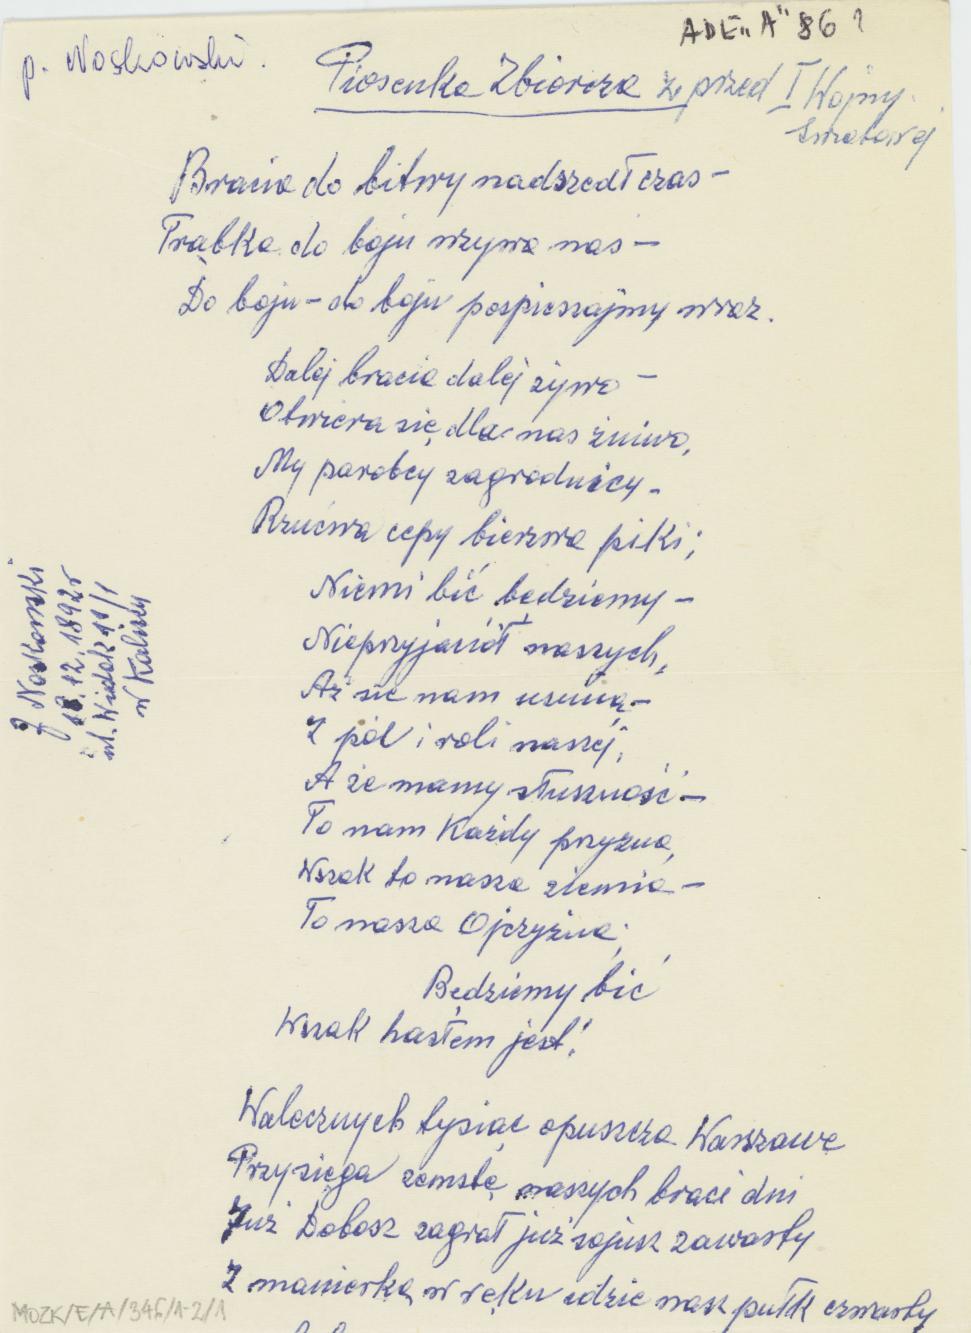 ADE „A" 86 1
p. Noskowski.
Piosenka Zbiorcza ze przed I Wojny
Światowej
Bracia do bitwy nadszedł czas –
Trąbka do boju wzywa nas –
Do boju – do boju pospieszajmy wraz.
Dalej bracia dalej żywo –
Otwiera się dla nas żniwo,
My parobcy zagrodnicy –
Rzućwa cepy bierzwa piki;
Niemi bić będziemy –
Nieprzyjaciół naszych,
Aż sie nam usuną –
Z pól i roli naszej,
A że mamy słuszność –
To nam Każdy przyzna,
Wszak to nasza ziemia –
To nasza Ojczyzna;
Będziemy bić
Wszak hasłem jest!
Walecznych tysiąc opuszcza Warszawę
Przysięga zemstę naszych braci dni
Już Dobosz zagrał już sojusz zawarty
Z manierką w ręku idzie nasz pułk czwarty
J Noskowski
12.1892r
ul. Widok 11/1
w Kaliszu
MOZK/E/A/346/1-2/1